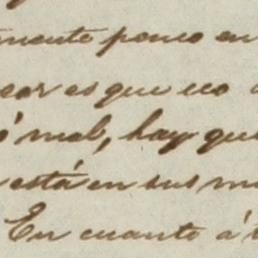 mente poco en
peor es que no
ó mal, hay que
está en sus m
En cuanto á t